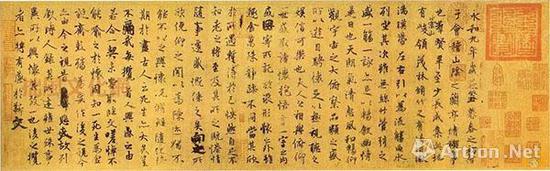 永和九年歲在癸丑暮春之初會
于會稽山陰之蘭亭脩稧事
也羣賢畢至少長咸集此地
有崇山峻領茂林脩竹又有清流激
湍暎帶左右引以為流觴曲水
列坐其次雖無絲竹管弦之
盛一觴一詠亦足以暢敘幽情
是日也天朗氣清惠風和暢仰
觀宇宙之大俯察品類之盛
所以遊目騁懷足以極視聽之
娛信可樂也夫人之相與俯仰
一世或取諸懷抱悟言一室之內
或因寄所託放浪形骸之外雖
趣舍萬殊靜躁不同當其欣
於所遇蹔得於己怏然自足不
知老之將至及其所之既惓情
隨事遷感慨係之矣向之所
欣俛仰之閒以為陳迹猶不
能不以之興懷況脩短隨化終
期於盡古人云死生亦大矣豈
不痛哉每攬昔人興感之由
若合一契未嘗不臨文嗟悼不
能喻之於懷固知一死生為虛
誕齊彭殤為妄作後之視今
亦由今之視昔悲夫故列
敘時人錄其所述雖世殊事
異所以興懷其致一也後之攬
者亦將有感於斯文
Artron.Net